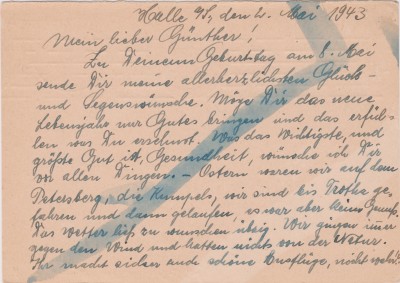 Halle a/S, den 2. Mai 1943
Mein lieber Günther!
Zu Deinem Geburtstag am 8. Mai
sende Dir meine allerherzlichsten Glück-
und Segenswünsche. Möge Dir das neue
Lebensjahr nur Gutes bringen und das erfül-
len was Du ersehnst. Was das Wichtigste, und
größte Gut ist, Gesundheit, wünsche ich Dir
vor allen Dingen. – Ostern waren wir auf dem
Petersberg, die Kumpels, wir sind bis Trotha ge-
fahren und dann gelaufen, es war aber kein Genuß.
Das Wetter ließ zu wünschen übrig. Wir gingen immer
gegen den Wind und hatten nichts von der Natur.
Ihr macht sicher auch schöne Ausflüge, nicht wahr?